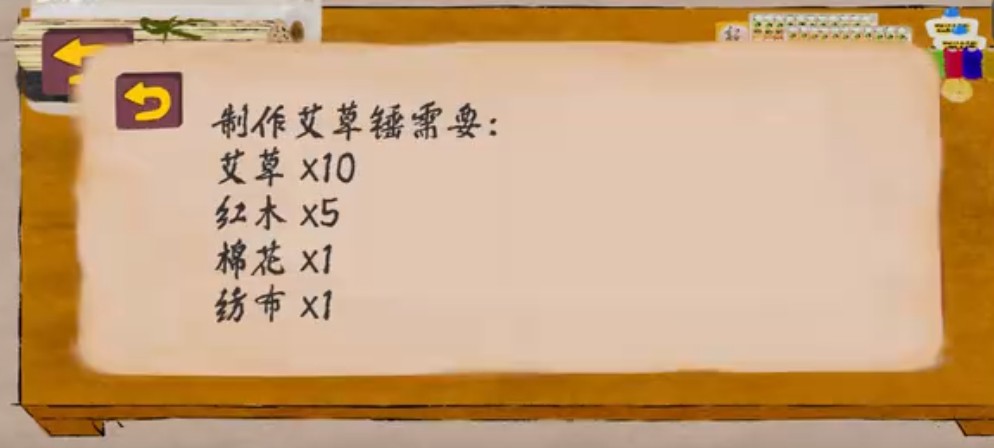 制作艾草锤需要：
艾草 x10
红木 x5
棉花 x1
纺布 x1